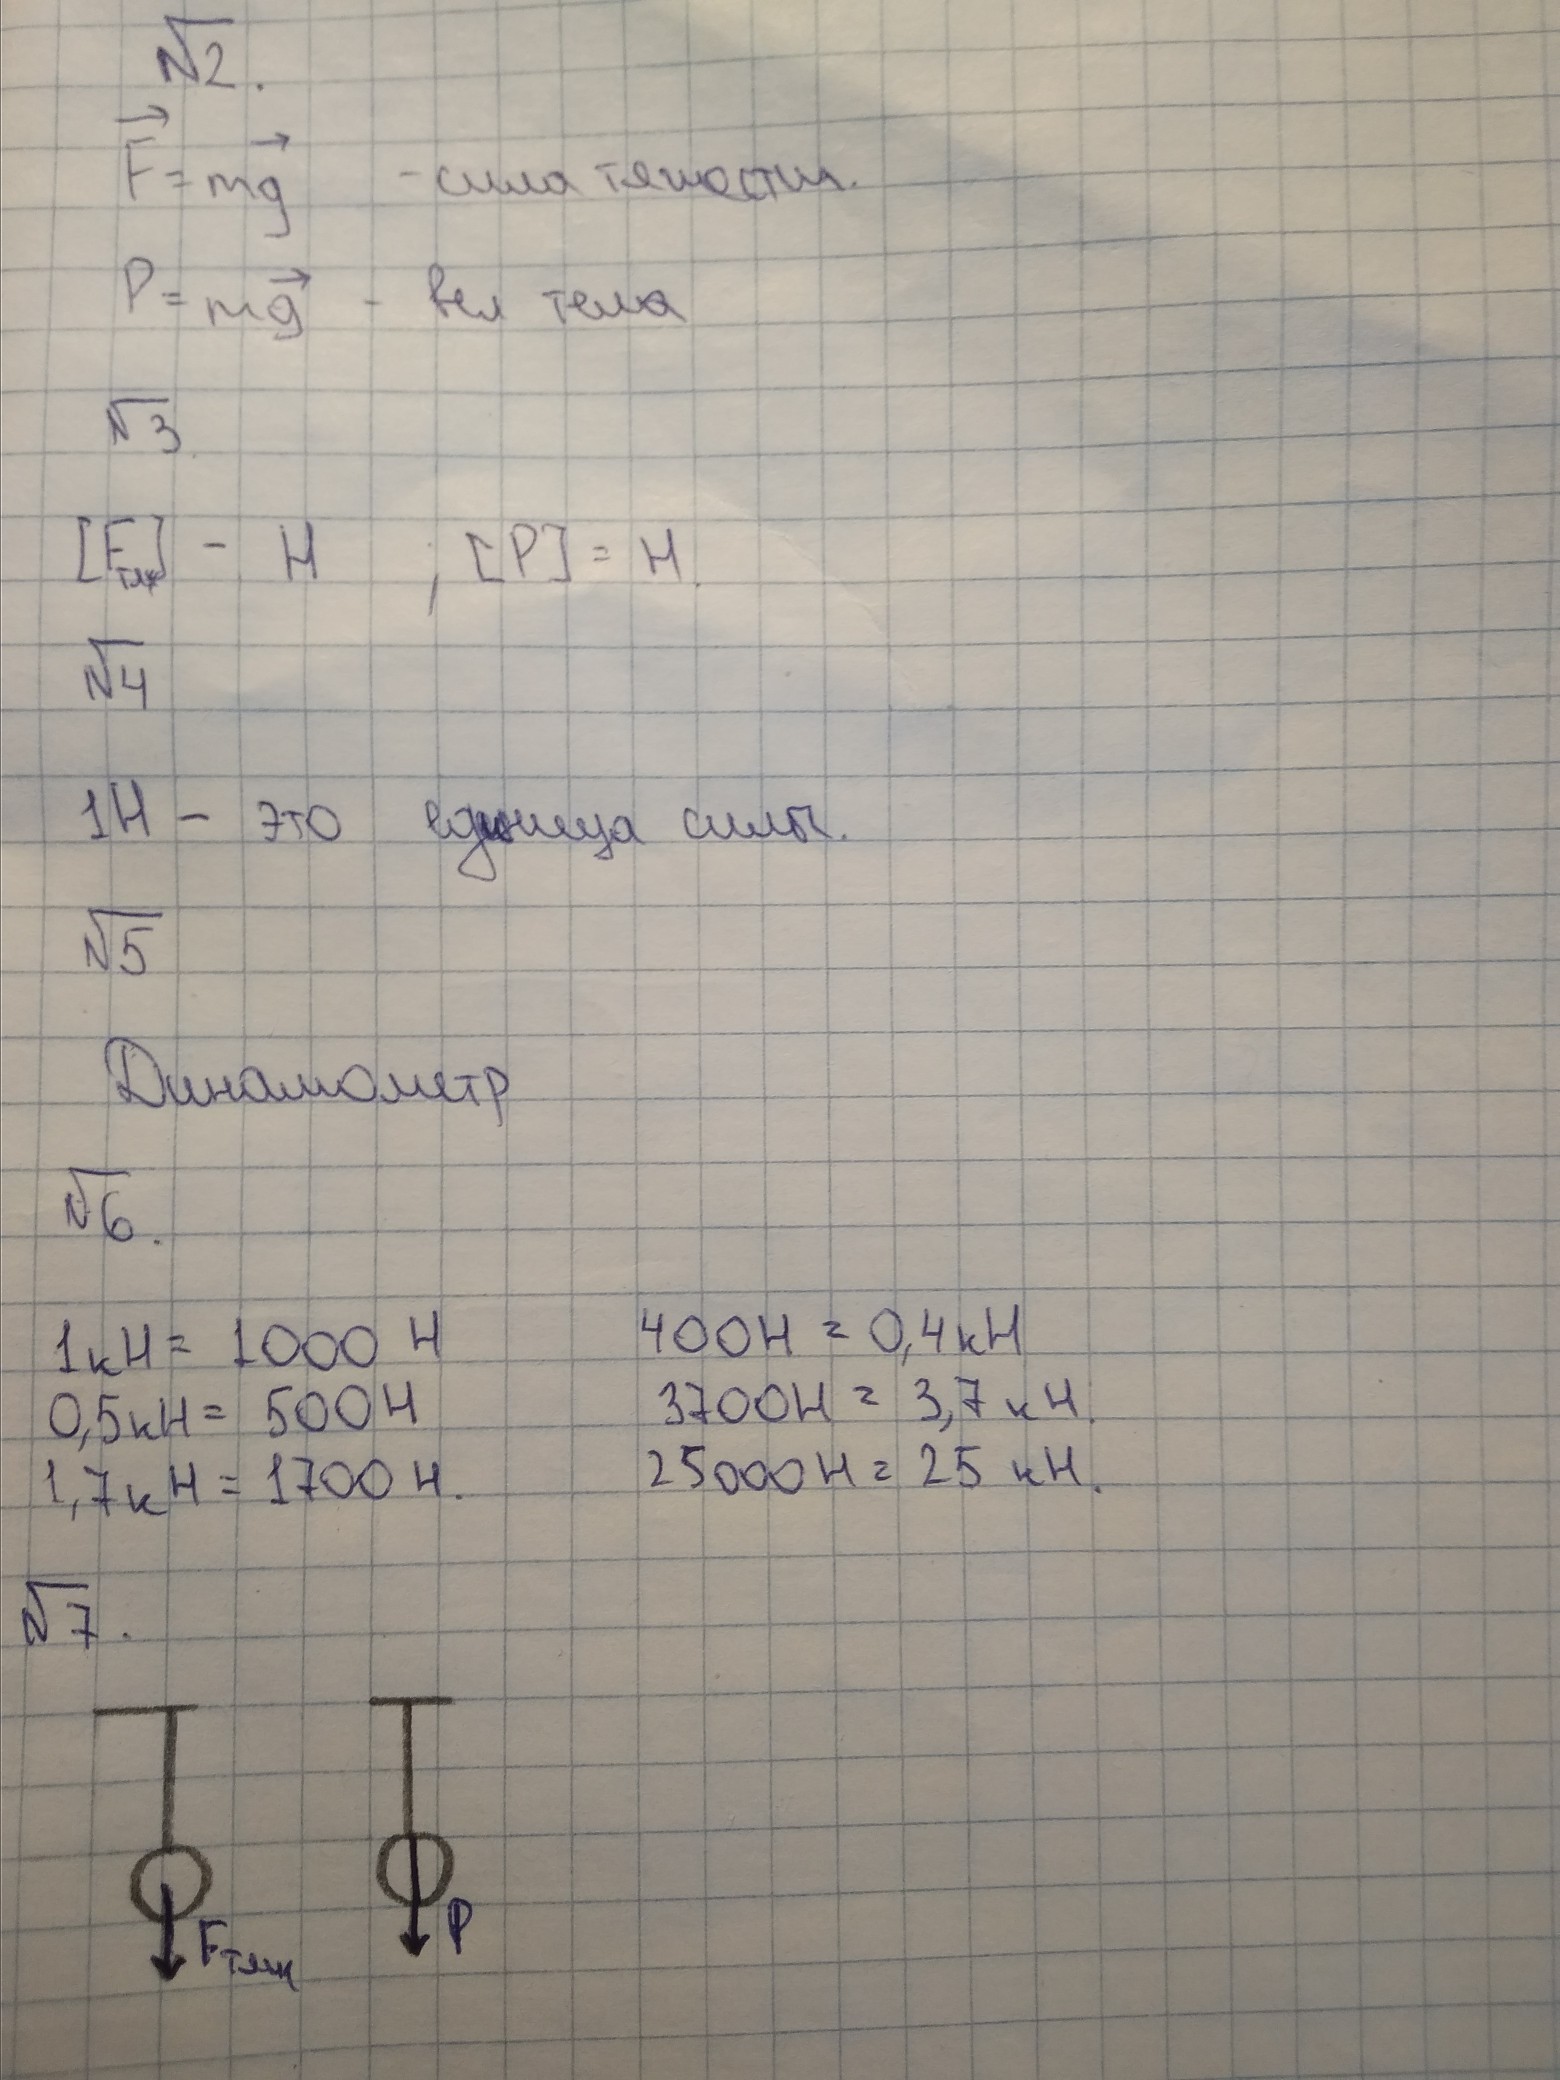 №2.
F⃗ = mg⃗ - сила тяжости.
P = mg⃗ - вел тела
№3.
[Fтяж] - Н ; [P] = Н.
№4
1Н - это единица силы.
№5
Динамометр
№6.
1кН = 1000 Н 400Н = 0,4кН
0,5кН = 500Н 3700Н = 3,7 кН.
1,7кН = 1700 Н. 25000Н = 25 кН.
№7.
Fтяж P